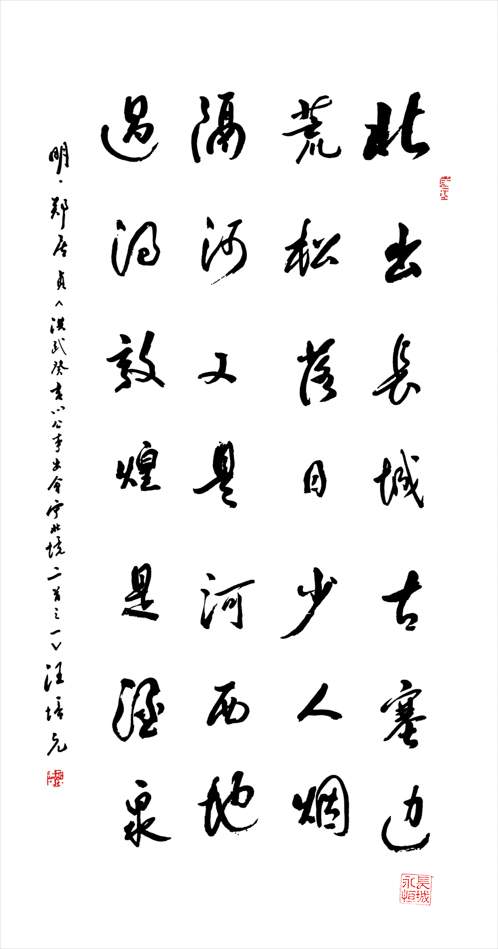 北出长城古塞边
荒松落日少人烟
隔河又是河西地
过得敦煌是酒泉
明·郑居贞《洪武癸亥以公事出会宁北境二首之一》汪培元
长城永恒